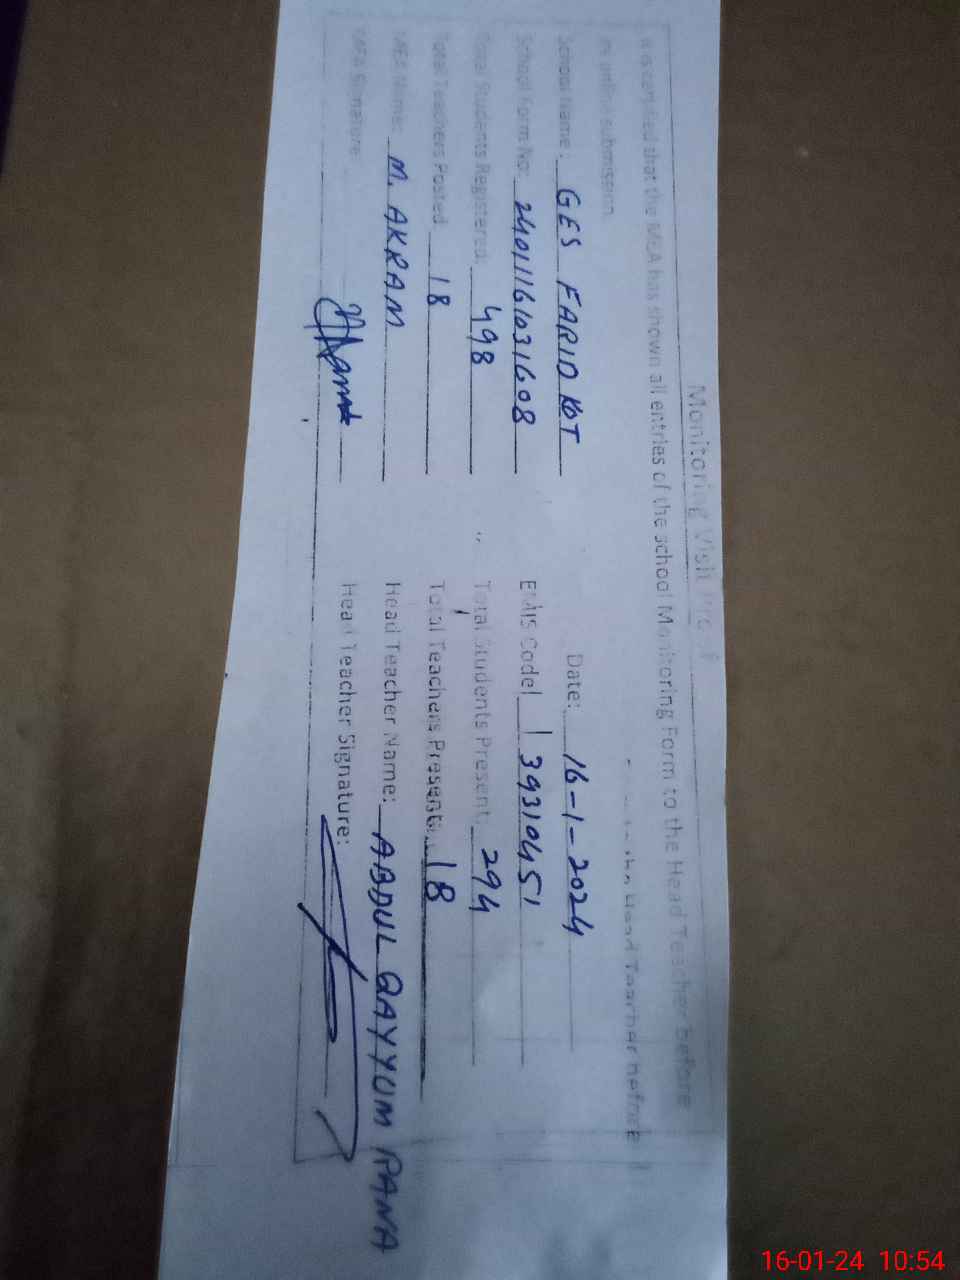 Monitoring Visit Proof
It is certified that the MEA has shown all entries of the school Monitoring Form to the Head Teacher before
the Head Teacher before
its online submission.
School Name: GES FARID KOT Date: 16-1-2024
School Form No: 24011161031608 EMIS Code| 39310451
Total Students Registered: 498 Total Students Present: 294
Total Teachers Posted: 18 Total Teachers Present: 18
MEA Name: M. AKRAM Head Teacher Name: ABDUL QAYYUM RANA
MEA Signature Head Teacher Signature:
16-01-24 10:54